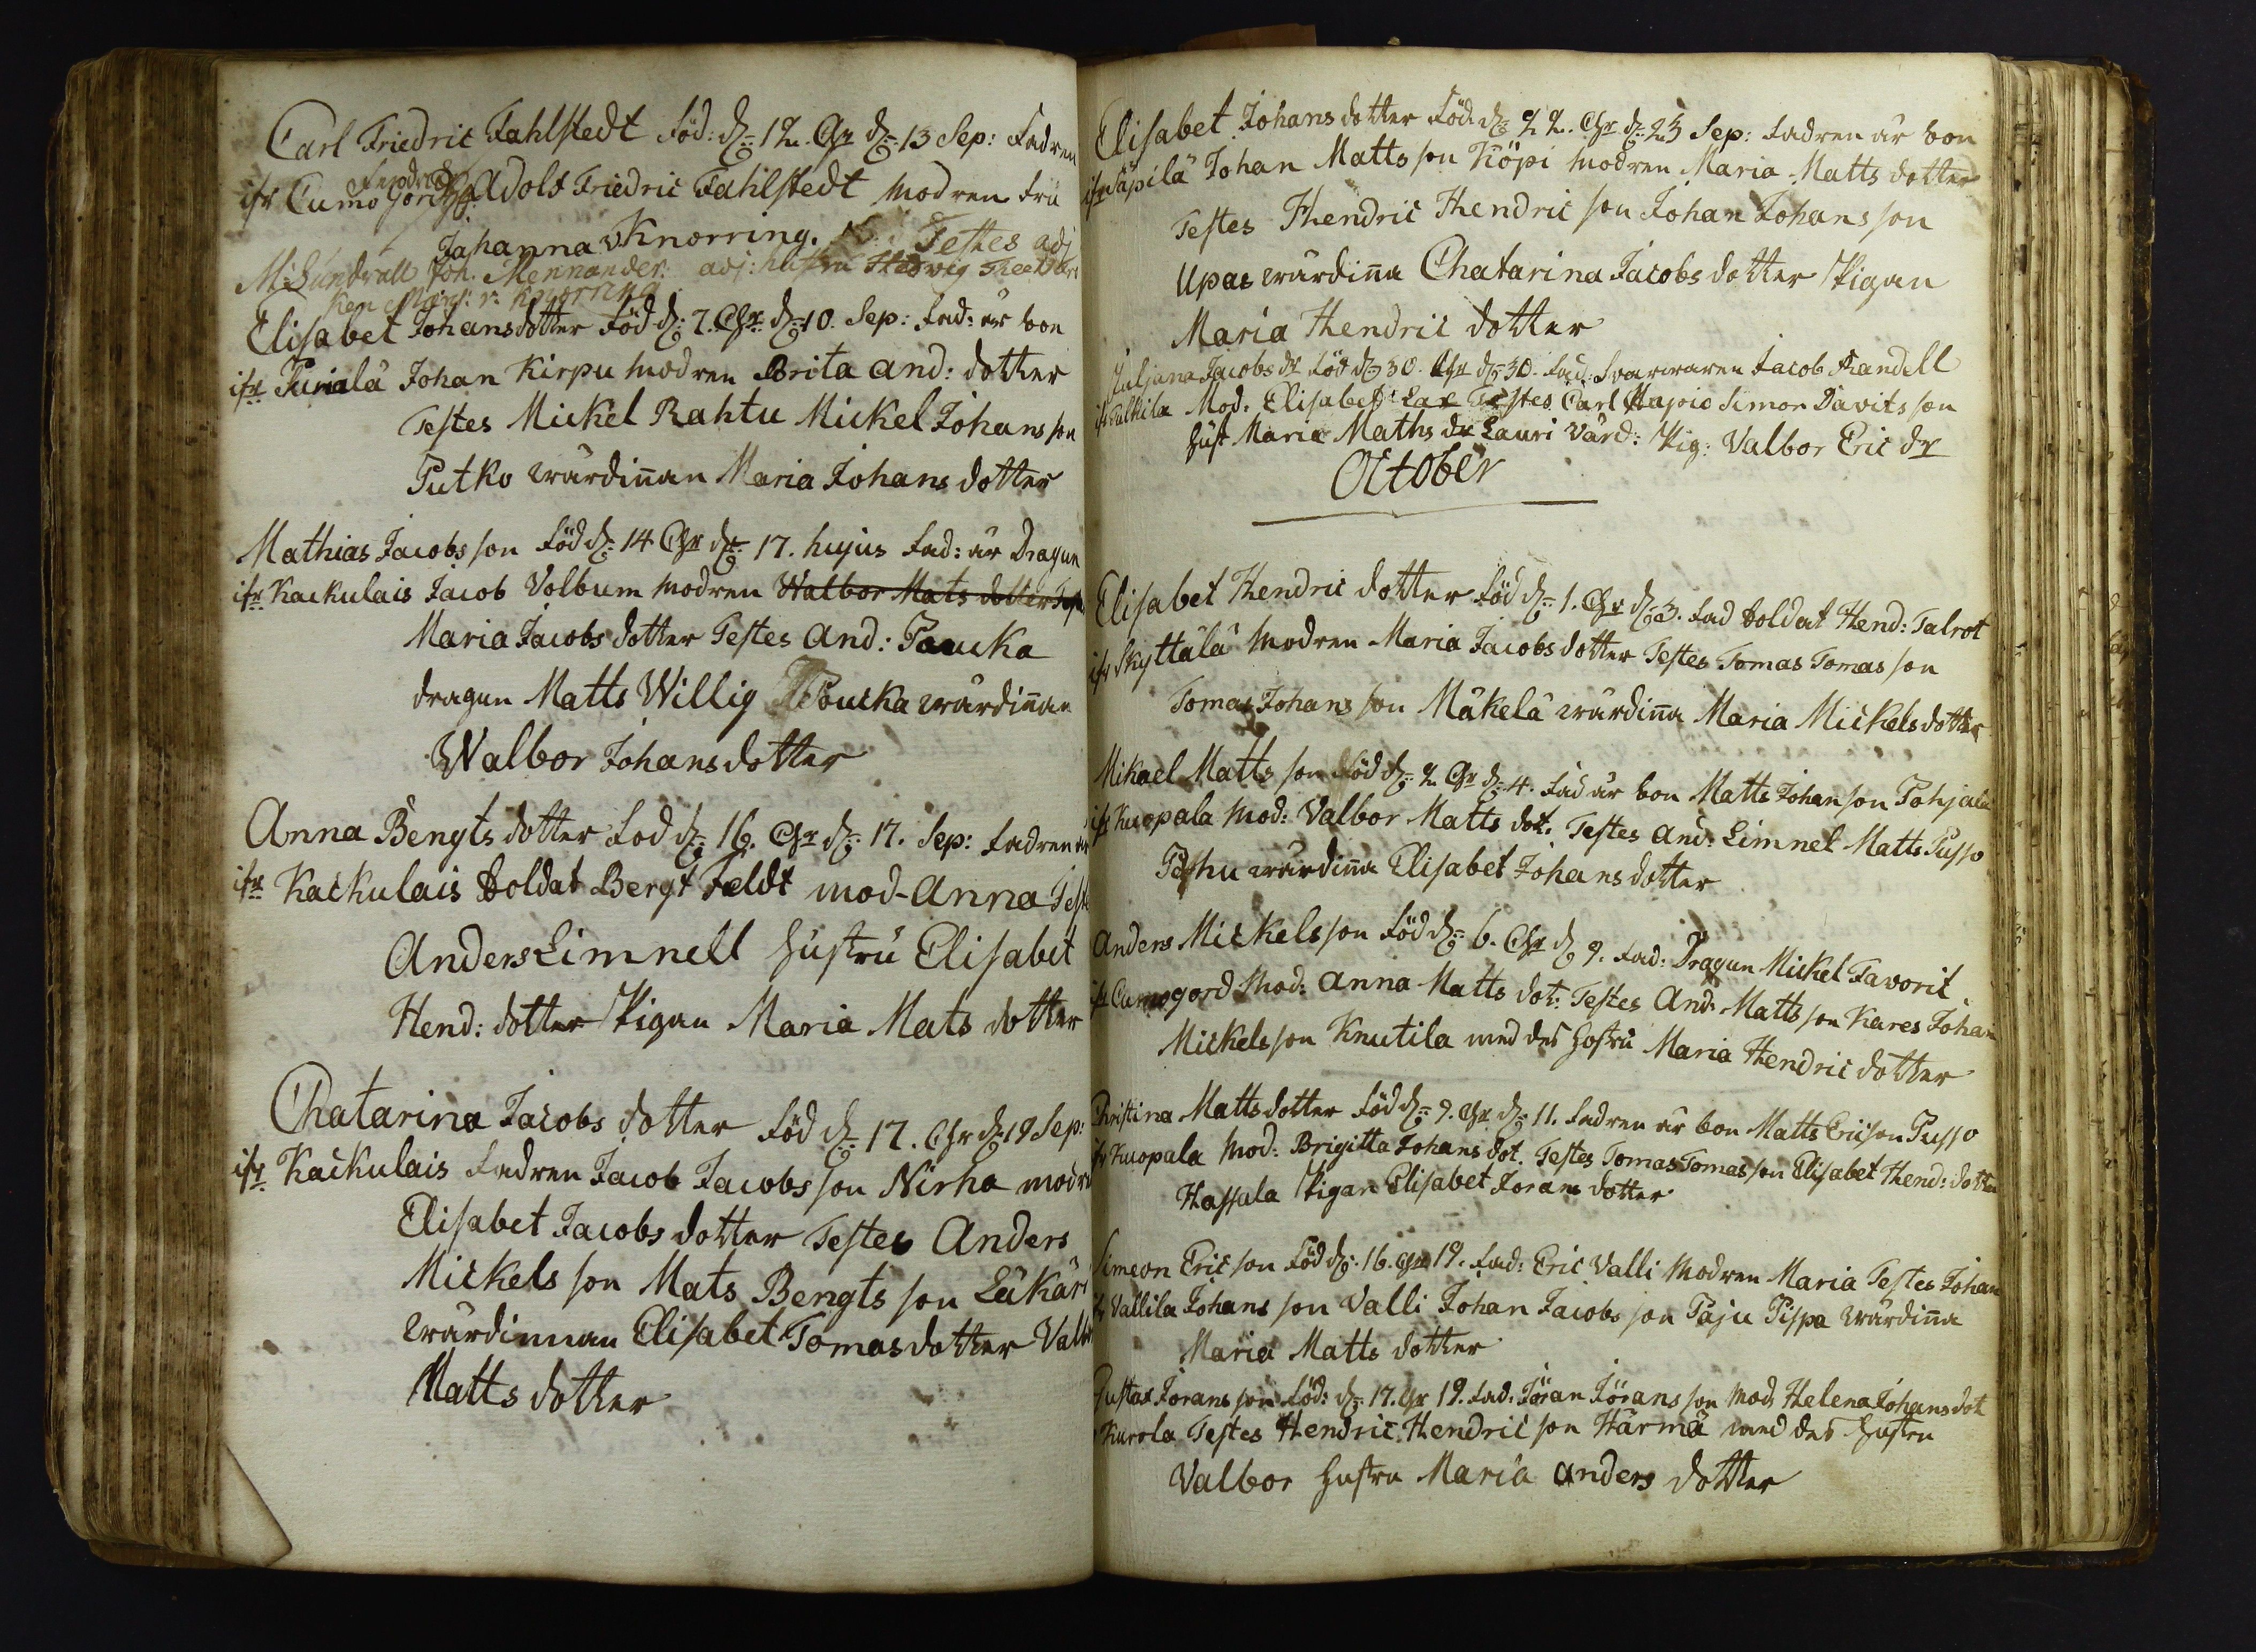 Carl Friedric Fahlstedt Föd: d: 12. Chr d: 13 Sep: Fadren
Fendrick
ifr Cumo gord H: Adolf Friedric Fahlstedt Modren Fru
Johanna v Knorring. Testes adj
M: Sundvall Joh. Mennander: adj: hustru Hedvig
Marg: v: Knorring
Elisabet Johansdotter Föd d: 7. Chr d: 10. Sep: Fad: är bon
ifr Puriala Johan Kirpu Modren Brita And: dotter
Testes Mickel Rahtu Mickel Johans son
Putko wärdinnan Maria Johans dotter
Mathias Jacobs son Föd d: 14 Chr d: 17. hujus Fad: är Dragun
ifr Kackulais Jacob Volbum modren Walbor Mats dotter
Maria Jacobs dotter Testes And: Paucka
dragun Matts Willig Poucka wärdinnan
Walbor Johansdotter
Anna Bengts dotter Föd d: 16. Chr d: 17. Sep: Fadren är
ifr Kackulais Soldat Bergt Feldt mod- Anna Test
Anders Limnell Hustru Elisabet
Hend: dotter Pigan Maria Mats dotter
Chatarina Jacobs dotter Föd d: 17. Chr d: 19 Sep:
ifr Kackulais Fadren Jacob Jacobs son Nirho modr
Elisabet Jacobs dotter Testes Anders
Mickels son Mats Bengts son Läkäri
wärdinnan Elisabet Tomasdotter Valb
Matts dotter
Elisabet Johans dotter Föd d: 22. Chr d: 25 Sep: Fadren är bon
ifr Päpilä Johan Matts son Köpi modren Maria Matts dotter
Testes Hendric Hendric son Johan Johans son
Upas wärdinna Chatarina Jacobs dotter Pigan
Maria Hendric dotter
Juljana Jacobs dr Föd d: 30. Chr d: 30. Fad: Svarvaren Jacob Randell
ifr Talkila Mod: Elisabet: Lax Testes Carl Hapio Simon Davits son
Hust Maria Maths dr Lauri Värd: Pig: Valbor Eric dr
October
Elisabet Hendric dotter Föd d: 1. Chr d: 3. Fad Soldat Hend: Talrot
ifr Skyttälä Modren Maria Jacobs dotter Testes Tomas Tomas son
Tomas Johans son Mäkelä wärdinna Maria Mickels dotter
Mikael Matts son Föd d: 2. Chr d: 4. Fad är bon Matts Johan son Pohjala
ifr Kuopala Mod: Valbor Matts dot. Testes And: Limnel Matts Pusso
wärdinna Elisabet Johans dotter
Anders Mickels son Föd d: 6. Chr d 9. Fad: Dragun Mickel Favorit
ifr Cumogord Mod: Anna Matts dot: Testes And: Matts son Kares Johan
Mickels son Knutila med des Hostru Maria Hendric dotter
Christina Matts dotter Föd d: 9. Chr d: 11. Fadren är bon Matts Ericson Pusso
ifr Kuopala Mod: Brigitta Johans dot. Testes Tomas Tomas son Elisabet Hend: dotter
Hassala Pigan Elisabet Jorans dotter
Simeon Eric son Föd d: 16. Chr 19. Fad: Eric Valli Modren Maria Testes Johan
ifr Vallila Johans son Valli Johan Jacobs son Paju Pispa wärdinna
Maria Matts dotter
Gustav Jorans son Föd: d: 17. Chr 19. Fad: Jöran Jörans son Mod Helena Johans dot
Kurola Testes Hendric Hendric son Härmä med des Hustru
Valbor Hustru Maria Anders dotter